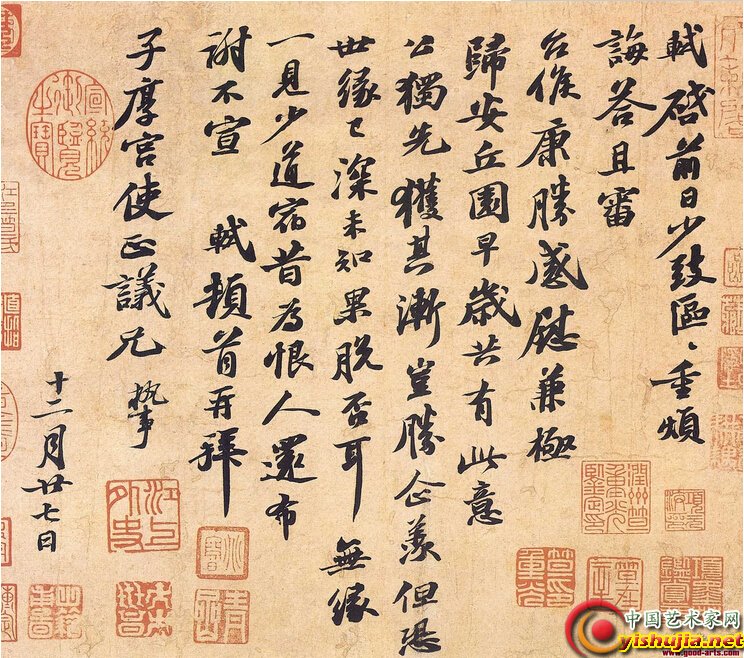 軾啓前日少致區〻重煩
誨答且審
台候康勝感慰兼極
歸安丘園早歲共有此意
公獨先獲其漸豈勝企羨但恐
世緣已深未知果脫否耳無緣
一見少道宿昔為恨人還布
謝不宣 軾頓首再拜
子厚宮使正議兄 執事
十二月廿七日
宣統御覽之寶
中国艺术家网
yishujia.net
www.good-arts.com